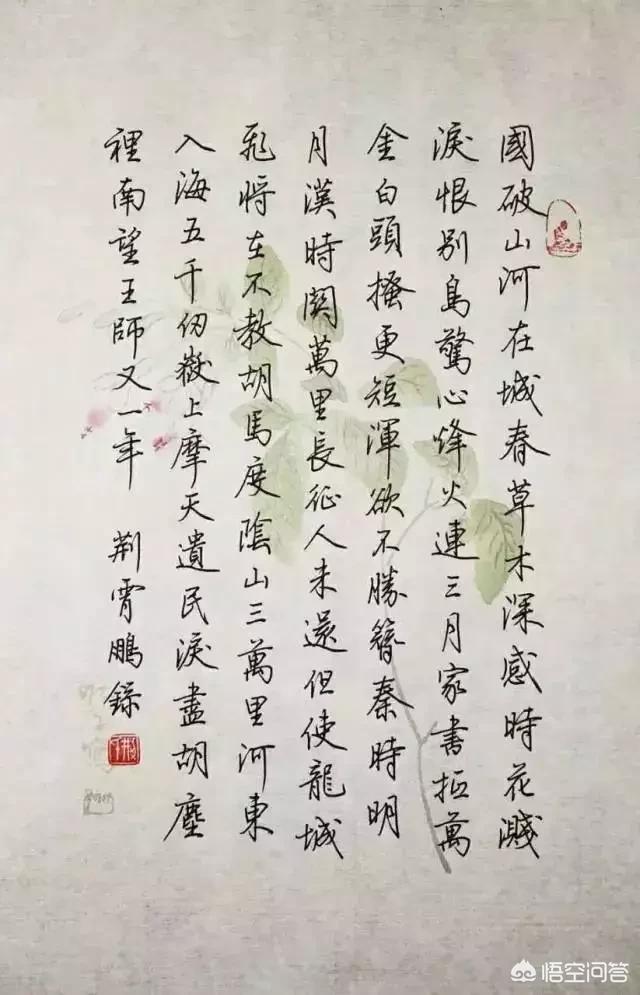 國破山河在城春草木深感時花濺
淚恨别鳥驚心烽火連三月家書抵萬
金白頭搔更短渾欲不勝簪秦時明
月漢時関萬里長征人未還但使龍城
飛將在不教胡馬度陰山三萬里河東
入海五千仞嶽上摩天遺民淚盡胡塵
裡南望王師又一年 荆霄鵬錄
悟空问答